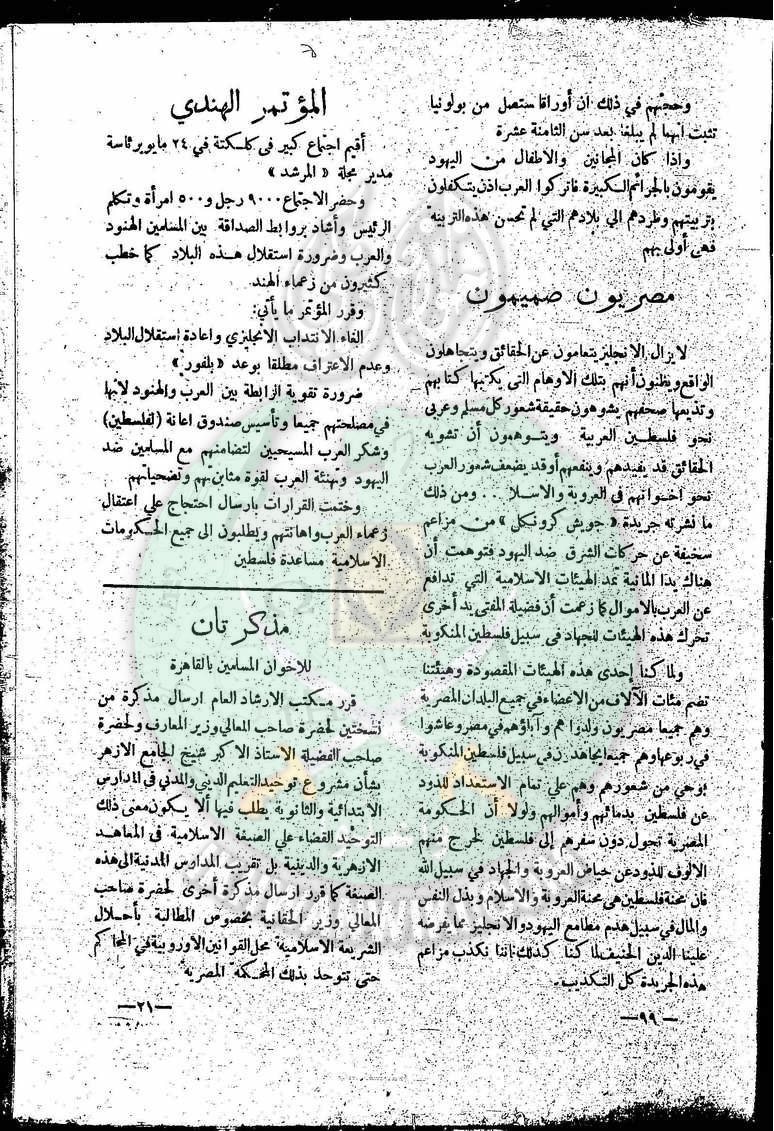 وحجتهم في ذلك ان أوراقا ستصل من بولونيا
تثبت انهما لم يبلغا بعد سن الثامنة عشرة
واذا كان المجانين والاطفال من اليهود
يقومون بالجرائم الكبيرة فاتركوا العرب اذن يتكفلون
بتربيتهم وطردهم الي بلادهم التي لم تحسن هذه التربية
فهى أولى بهم
مصريون صميمون
لا يزال الانجليز يتعامون عن الحقائق ويتجاهلون
الواقع ويظنون أنهم بتلك الاوهام التى يكتبها كتابهم
وتذيعها صحفهم يشوهون حقيقة شعور كل مسلم وعربى
نحو فلسطين العربية ويتوهمون أن تشويه
الحقائق قد يفيدهم وينفعهم أو قد يضعف شعور العرب
نحو اخوانهم فى العروبة والاسلا . . . ومن ذلك
ما نشرته جريدة « جويش كرونكل » من مزاعم
سخيفة عن حركات الشرق ضد اليهود فتوهمت أن
هناك يدا المانية تمد الهيئات الاسلامية التي تدافع
عن العرب بالاموال كما زعمت أن فضيلة المفتى يد أخرى
تحرك هذه الهيئات للجهاد فى سبيل فلسطين المنكوبة
ولما كنا إحدى هذه الهيئات المقصودة وهيئتنا
تضم مئات الآلاف من الاعضاء فى جميع البلدان المصرية
وهم جميعا مصريون ولدوا هم وآباؤهم فى مصر وعاشوا
فى ربوعها وهم جميعا يجاهدون فى سبيل فلسطين المنكوبة
بوحي من شعورهم وهم علي تمام الاستعداد للذود
عن فلسطين بدمائهم وأموالهم ولولا أن الحكومة
المصرية تحول دون سفرهم إلى فلسطين لخرج منهم
الالوف للذود عن حياض العروبة والجهاد في سبيل الله
فان محنة فلسطين هي محنة العروبة والاسلام وبذل النفس
والمال في سبيل هدم مطامع اليهود والانجليز مما يفرضه
علينا الدين الحنيف لما كنا كذلك اننا نكذب مزاعم
هذه الجريدة كل التكذيب .
— ٩٩ —
المؤتمر الهندي
أقيم اجتماع كبير فى كلكتة في ٢٤ مايو برئاسة
مدير مجلة « المرشد »
وحضر الاجتماع ٩٠٠٠ رجل و ٥٠٠ امرأة وتكلم
الرئيس وأشاد بروابط الصداقة بين المسلمين الهنود
والعرب وضرورة استقلال هذه البلاد كما خطب
كثيرون من زعماء الهند
وقرر المؤتمر ما يأتى :
الغاء الانتداب الانجليزي واعادة استقلال البلاد
وعدم الاعتراف مطلقا بوعد « بلفور »
ضرورة تقوية الرابطة بين العرب والهنود لانها
في مصلحتهم جميعا وتأسيس صندوق اعانة (لفلسطين)
وشكر العرب المسيحيين لتضامنهم مع المسلمين ضد
اليهود وتهنئة العرب لقوة مثابرتهم وتضحياتهم
وختمت القرارات بارسال احتجاج علي اعتقال
زعماء العرب واهانتهم ويطلبون الى جميع الحكومات
الاسلامية مساعدة فلسطين
مذكرتان
للاخوان المسلمين بالقاهرة
قرر مكتب الارشاد العام ارسال مذكرة من
نسختين لحضرة صاحب المعالي وزير المعارف ولحضرة
صاحب الفضيلة الاستاذ الاكبر شيخ الجامع الازهر
بشأن مشروع توحيد التعليم الديني والمدني فى المدارس
الابتدائية والثانوية يطلب فيها ألا يكون معنى ذلك
التوحيد القضاء علي الصبغة الاسلامية فى المعاهد
الازهرية والدينية بل تقريب المدارس المدنية الى هذه
الصبغة كما قرر ارسال مذكرة أخرى لحضرة صاحب
المعالي وزير الحقانية بخصوص المطالبة بأحلال
الشريعة الاسلامية محل القوانين الأوروبية في المحاكم
حتى تتوحد بذلك المحكمة المصرية
— ٢١ —